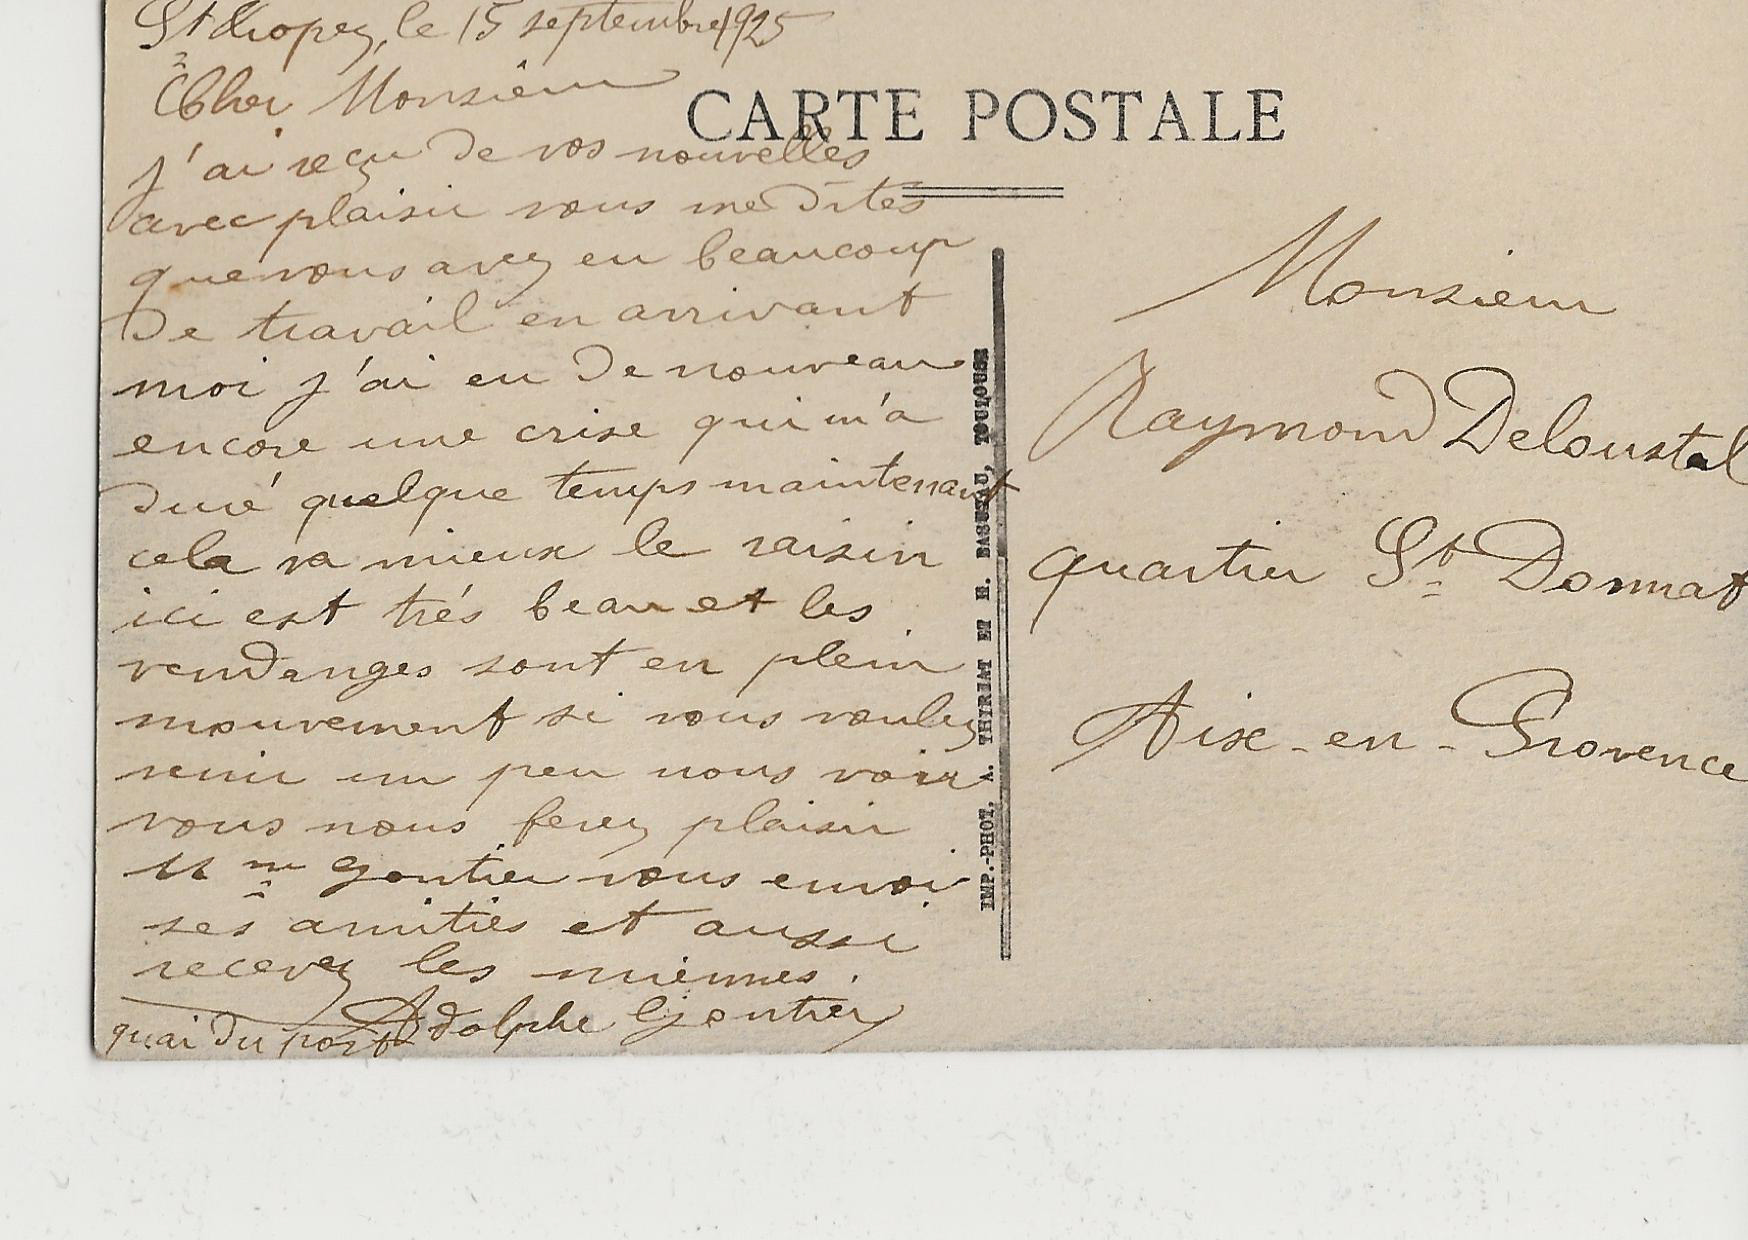 St Tropez, le 15 septembre 1925
Cher Monsieur
j'ai reçu de vos nouvelles
avec plaisir vous me dites
que vous avez eu beaucoup
de travail en arrivant
moi j'ai eu de nouveau
encore une crise qui m'a
duré quelque temps maintenant
cela va mieux le raisin
ici est trés beau et les
vendanges sont en plein
mouvement si vous voulez
venir un peu nous voir
vous nous ferez plaisir
Mme Gontier vous envoi
ses amitiés et aussi
recevez les miennes.
Adolphe Gontier
quai du port
CARTE POSTALE
IMP.-PHOT. A. THIRIAT ET H. BASUYAU, TOULOUSE
Monsieur
Raymond Deloustal
quartier St Donnat
Aix-en-Provence